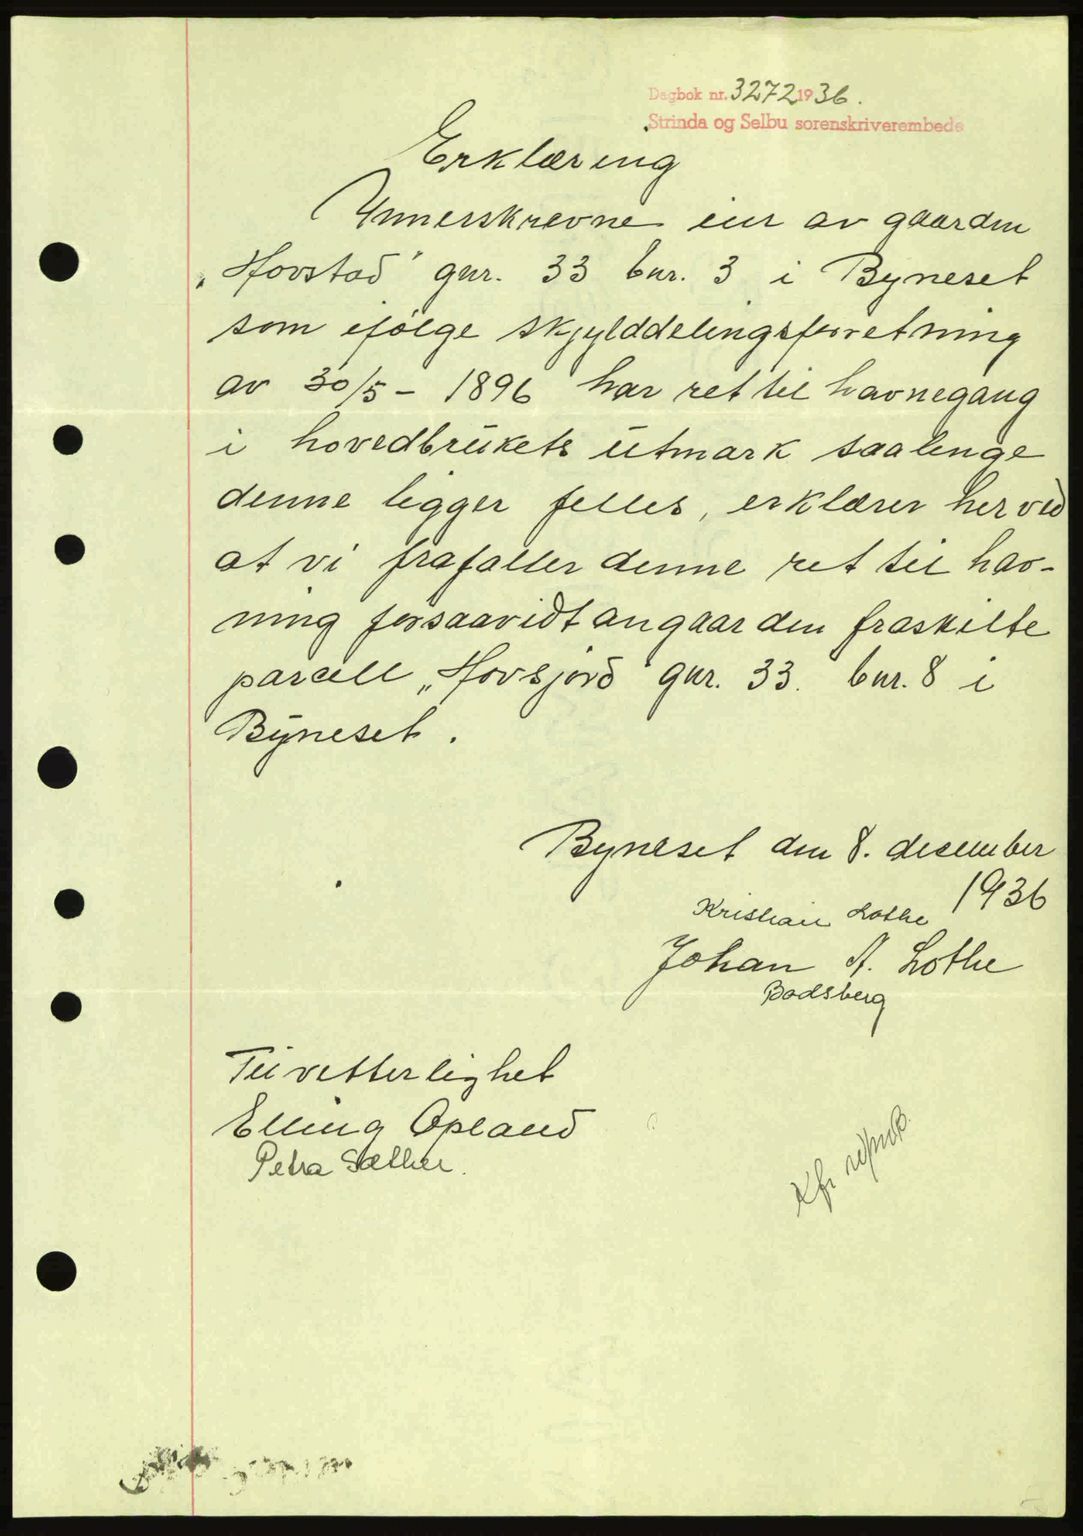 Dagbok nr. 3272 1936.
Strinda og Selbu sorenskriverembede
Erklæring
Unnerskrevne eier av gaarden
„Hovstad" gnr. 33 bnr. 3 i Byneset
som ifølge skjylddelingsforretning
av 30/5 - 1896 har ret til havnegang
i hovedbrukets utmark saalenge
denne ligger felles, erklærer herved
at vi frafaller denne ret til hav-
ning forsaavidt angaar den fraskilte
parcell „Hovsjord" gnr. 33. bnr. 8 i
Byneset.
Byneset den 8. december
1936
Kristian Lothe
Johan A. Lothe
Bodsberg
Til vetterlighet
Elling Opland
Petra Sæther.